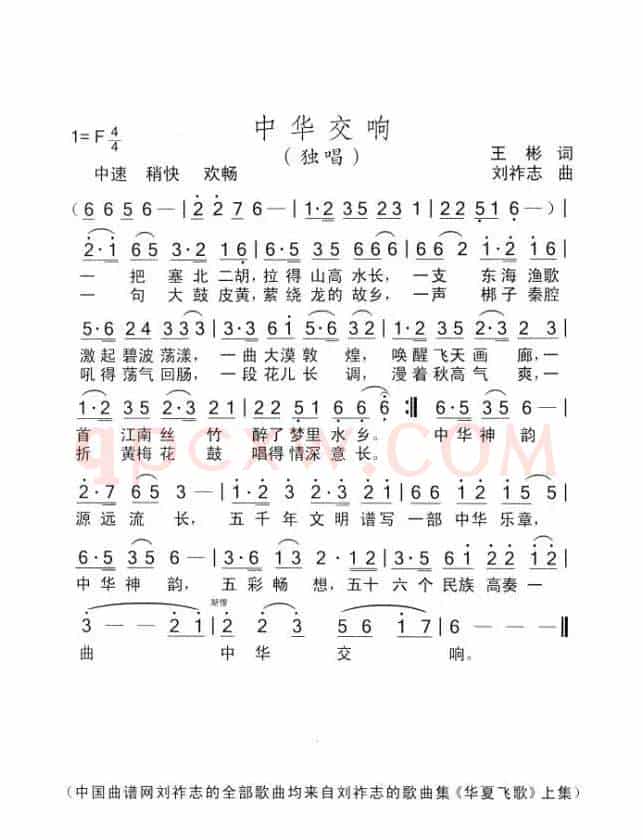 中华交响
1=F 4/4
（独唱）
王 彬 词
中速 稍快 欢畅
刘祚志 曲
（6 6 5 6 － | 2 2 7 6 － | 1·2 3 5 2 3 2 1 | 2 2 5 1 6 － ）|
2·1 6 5 3·2 1 6 | 6·5 3 5 6 6 6 6 2 | 1·2 1 6 |
一 把 塞北二胡，拉得山高水长，一支 东海渔歌
一 句 大鼓皮黄，萦绕龙的故乡，一声 梆子秦腔
5·6 2 4 3 3 3 3 | 3·3 6 i 5·6 3 2 | 1·2 3 5 2·3 2 3 |
激起碧波荡漾，一曲大漠敦煌，唤醒飞天画廊，一
吼得荡气回肠，一段花儿长调，漫着秋高气爽，一
1·2 3 5 2·3 2 1 | 2 2 5 1 6·6 6 :| 6·5 3 5 6 － |
首 江南丝竹 醉了梦里水乡。 中华神韵
折 黄梅花鼓 唱得情深意长。
2·7 6 5 3 － |
源远流长，五千年文明谱写一部中华乐章，
中华神韵，五彩畅想，五十六个民族高奏一
渐慢
3 － － 2 1 | 2 2 2 3 5 6 1 7 | 6 － － ‖
曲 中华交响。
qpcxw.com
（中国曲谱网刘祚志的全部歌曲均来自刘祚志的歌曲集《华夏飞歌》上集）